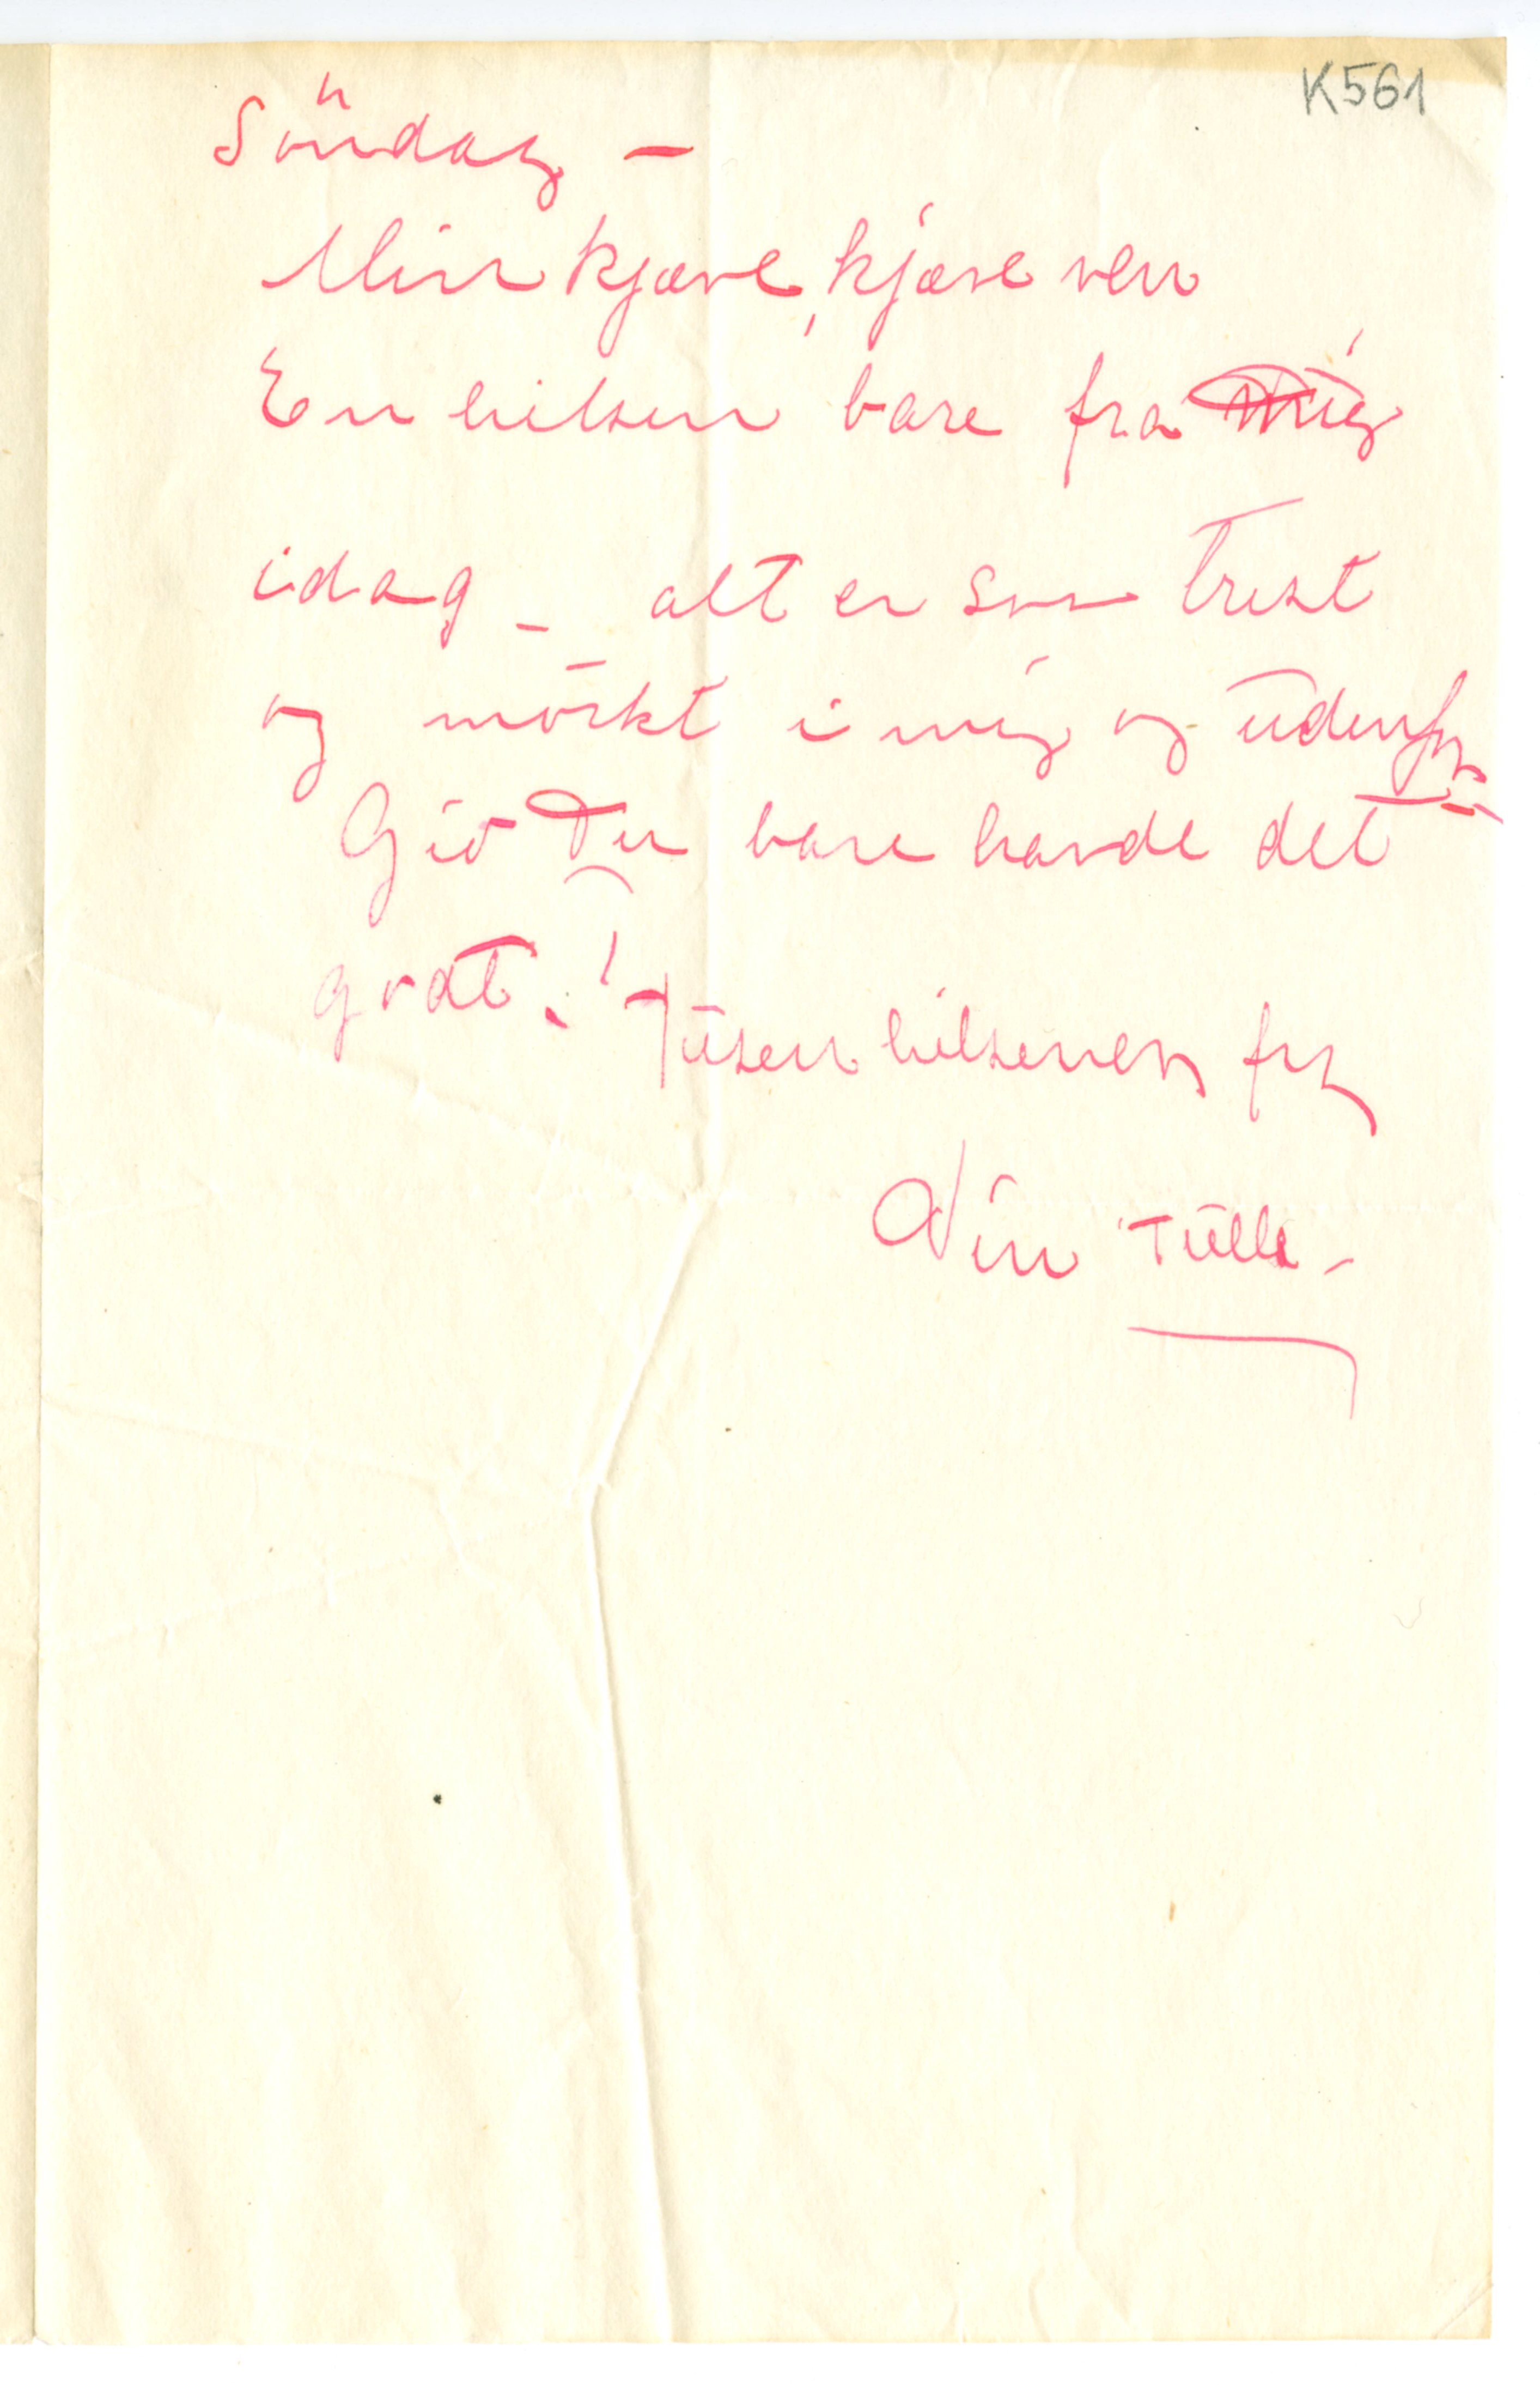 K561
Söndag –
Min kjære, kjære ven
En hilsen bare fra mig
idag – alt er saa trist
og mörkt i mig og udenfor
Gid Du bare havde det
godt.! Tusen hilsener fra
Din Tulla –